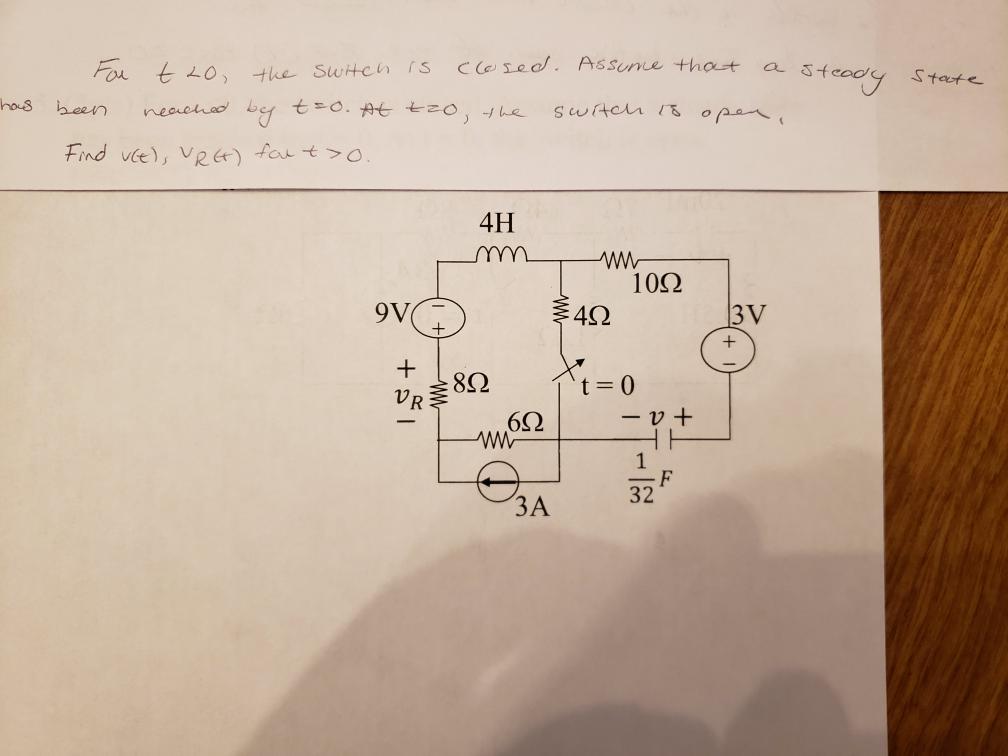 For t<0, the switch is closed. Assume that a steady state
has been reached by t=0. At t=0, the switch is open,
Find v(t), VR(t) for t>0.
4H
10Ω
9V
−
+
4Ω
3V
+
−
+
vR
−
8Ω
t = 0
6Ω
− v +
1/32 F
3A